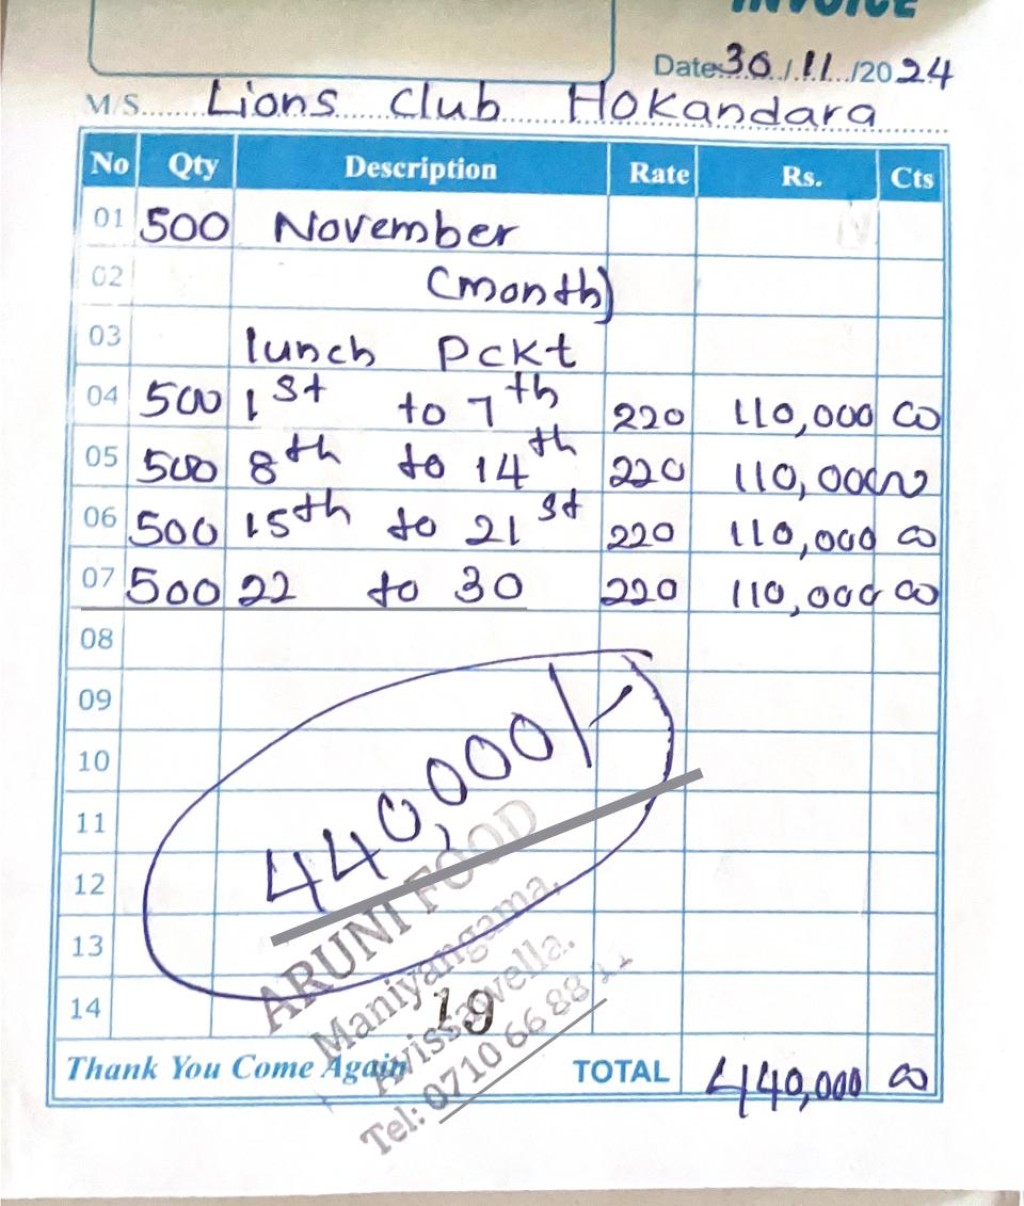 INVOICE
Date: 30/11/2024
M/S. Lions Club Hokandara
No Qty Description Rate Rs. Cts
01 500 November
02 (month)
03 lunch Pckt
04 500 1st to 7th 220 110,000 00
05 500 8th to 14th 220 110,000 00
06 500 15th to 21st 220 110,000 00
07 500 22 to 30 220 110,000 00
08
09
10
11
12
13
14
440,000/-
ARUNI FOOD
Maniyangama,
Avissawella.
19
Tel: 0710 66 88
Thank You Come Again TOTAL 440,000 00